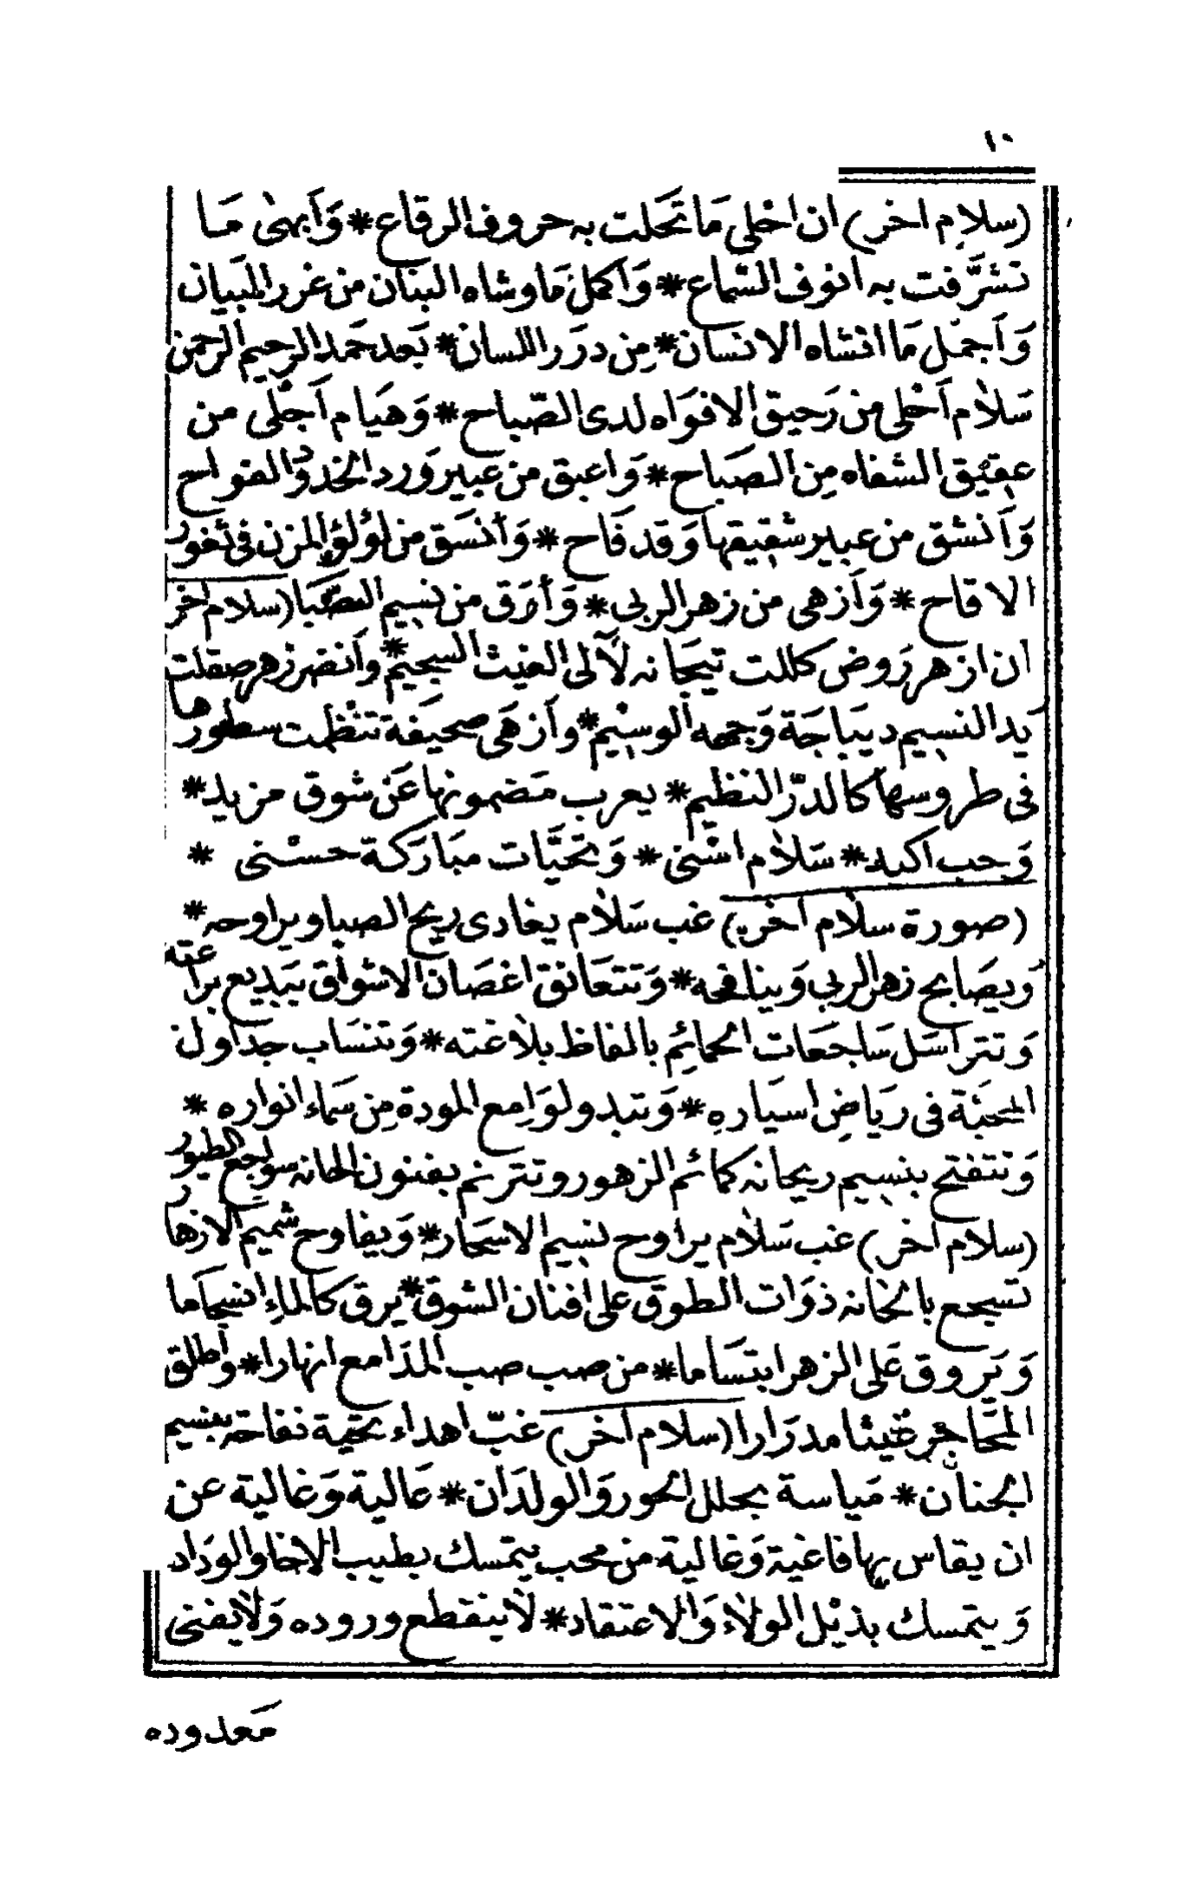 ١٠
(سلام اخر) ان احلى مَا تحَلت به حروف الرقاع * وَأبهى مَا
تشرَّفت به انوف السّماع * وَاكمل مَا وشاه البنان من غرر البَيان
وَأجمَل مَا انشاه الانسان * مِن درَر اللسان * بَعد حَمد الرحيم الرحمن
سَلام أحلى من رَحيق الافوَاه لدى الصّباح * وَهيَام أجْلى من
عقيق الشفاه مِن الصبَاح * وَاعبق من عبير وَرد الخدود الفواح
وَأنشق من عبير شقيقها وَقد فَاح * وَأنسَق من لؤلؤ المزن في ثغور
الاقاح * وَأزهى من زهر الربى * وَأرَق من نسيم الصَّبَا (سلام اخر
ان ازهر رَوض كللت تيجَانه لآلى الغيث السجيم * وأنضر زهر صقلت
يد النسيم ديبَاجَة وَجهه الوسيْم * وأزهَى صحيفَة تنْظمت سطورها
فى طروسها كالدرّ النظيم * يعرب مَضمونها عَن شوق مزيد *
وَحب اكيد * سَلام اسْنى * وَتحَيَّات مبَارَكة حسْنى *
(صورة سلام اخر) غب سَلام يغادى ريح الصبا ويراوحه *
وَيصَابح زهر الربى وَينافحه * وَتتعَانق اغصَان الاشواق ببَديع براعته
وَتترَاسَل سَاجعَات الحمائِم بالفاظ بلاغته * وَتنسَاب جدَاول
المحبَّة فى ريَاضِ اسيَارهِ * وَتبدو لوَامع المودة مِن سَماء انواره *
وَتتفتح بنسيم ريحانه كمائم الزهور وتترنم بفنون الحانه سواجع الطيور
(سلام اخر) غب سَلام يراوح نسيم الاسحَار * وَيفاوح شميم الازهار
تسجع بالحانه ذوَات الطوق على افنان الشوق * يرق كالماءِ انسجَاما
وَيَروق عَلى الزهر ابتسَاما * من صب صب المدَامع انهارا * وأطلق
المحَاجر غيثا مدرَارا (سلام اخر) غبّ اهداء تحيّة نفاحة بنسيم
الجنان * مَياسة بحلل الحور وَالولدَان * عَالية وَغالية عن
ان يقاس بها فاغية وَغالية من محب يتمسك بطيب الاخا والوَداد
وَيتمسك بذيْل الولاء وَالاعتقاد * لا ينقطع وروده وَلا يفنى
مَعدوده